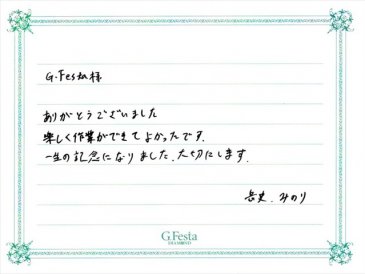 G.Festa様
ありがとうございました
楽しく作業ができてよかったです.
一生の記念になりました.大切にします.
岳史.みのり
G.Festa
DIAMOND